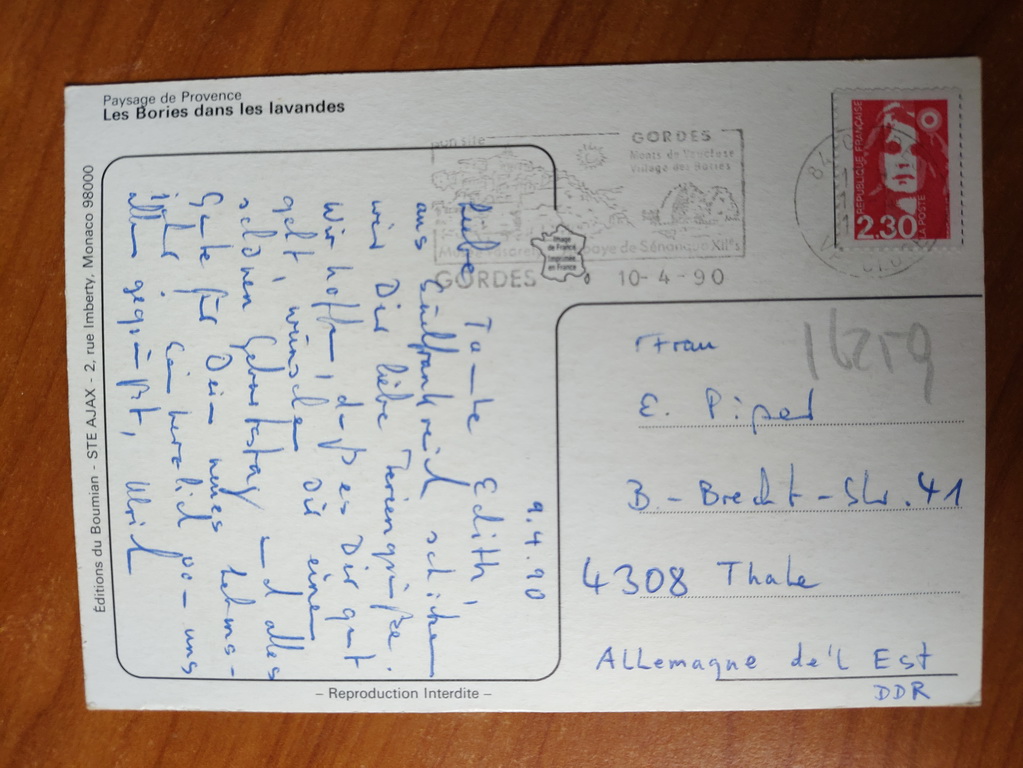 Paysage de Provence
Les Bories dans les lavandes
Éditions du Boumian - STE AJAX - 2, rue Imberty, Monaco 98000
GORDES
Monts de Vaucluse
Village des Bories
Abbaye de Sénanque XIIe s
GORDES 10-4-90
Image
de France
Imprimée
en France
REPUBLIQUE FRANÇAISE
2.30
LA POSTE
9.4.90
Liebe Tante Edith,
aus Südfrankreich schicken
wir Dir liebe Feriengrüße.
Wir hoffen, daß es Dir gut
geht, wünschen Dir einen
schönen Geburtstag und alles
Gute für Dein neues Lebens-
jahr. Sei herzlich von uns
allen gegrüßt, Ulrich
Frau
16259
E. Piper
B.-Brecht-Str. 41
4308 Thale
Allemagne de'l Est
DDR
– Reproduction Interdite –